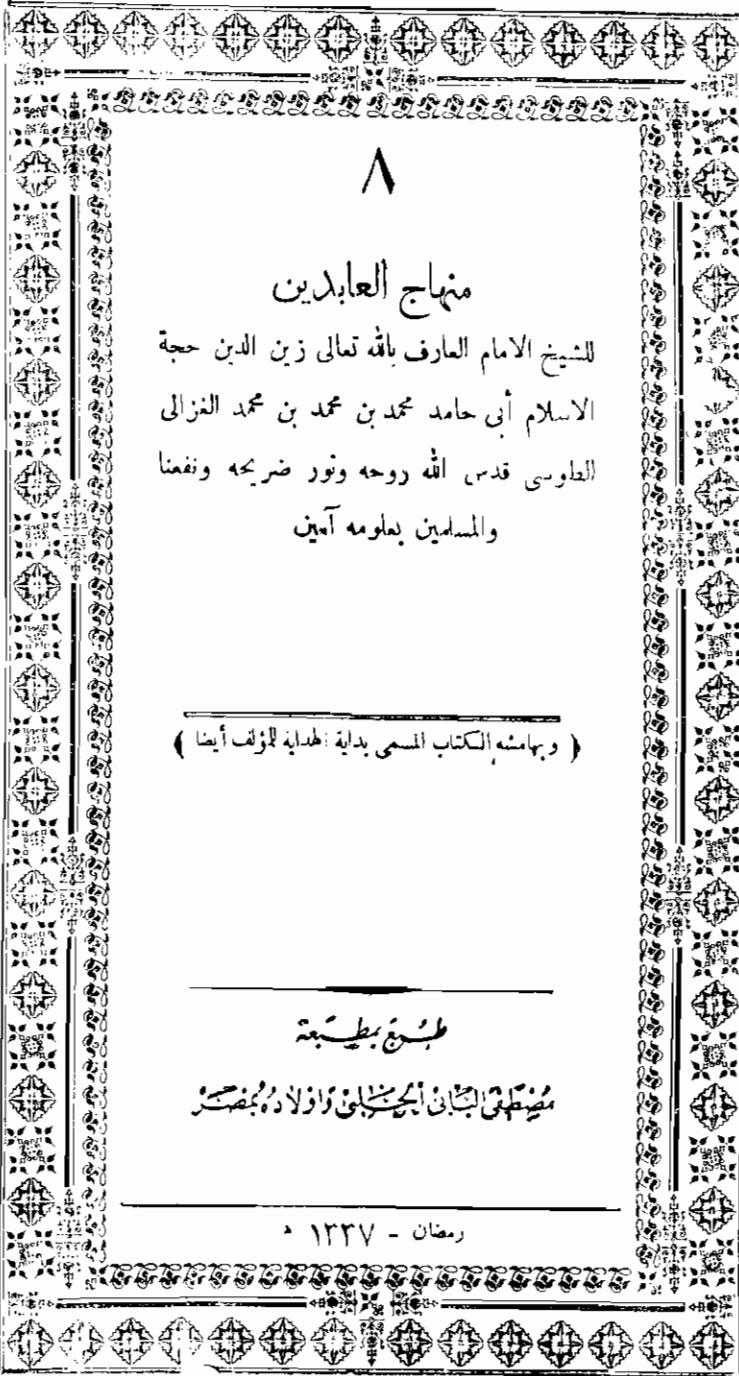 ٨
منهاج العابدين
للشيخ الامام العارف بالله تعالى زين الدين حجة
الاسلام أبى حامد محمد بن محمد بن محمد الغزالى
الطوسى قدس الله روحه ونور ضريحه ونفعنا
والمسلمين بعلومه آمين
﴿ وبهامشه الكتاب المسمى بداية الهداية للمؤلف أيضا ﴾
طبع بمطبعة
مُصْطَفى البَابى الحَلَبى وَاَولادُهُ بمِصْر
رمضان - ١٣٣٧ ه